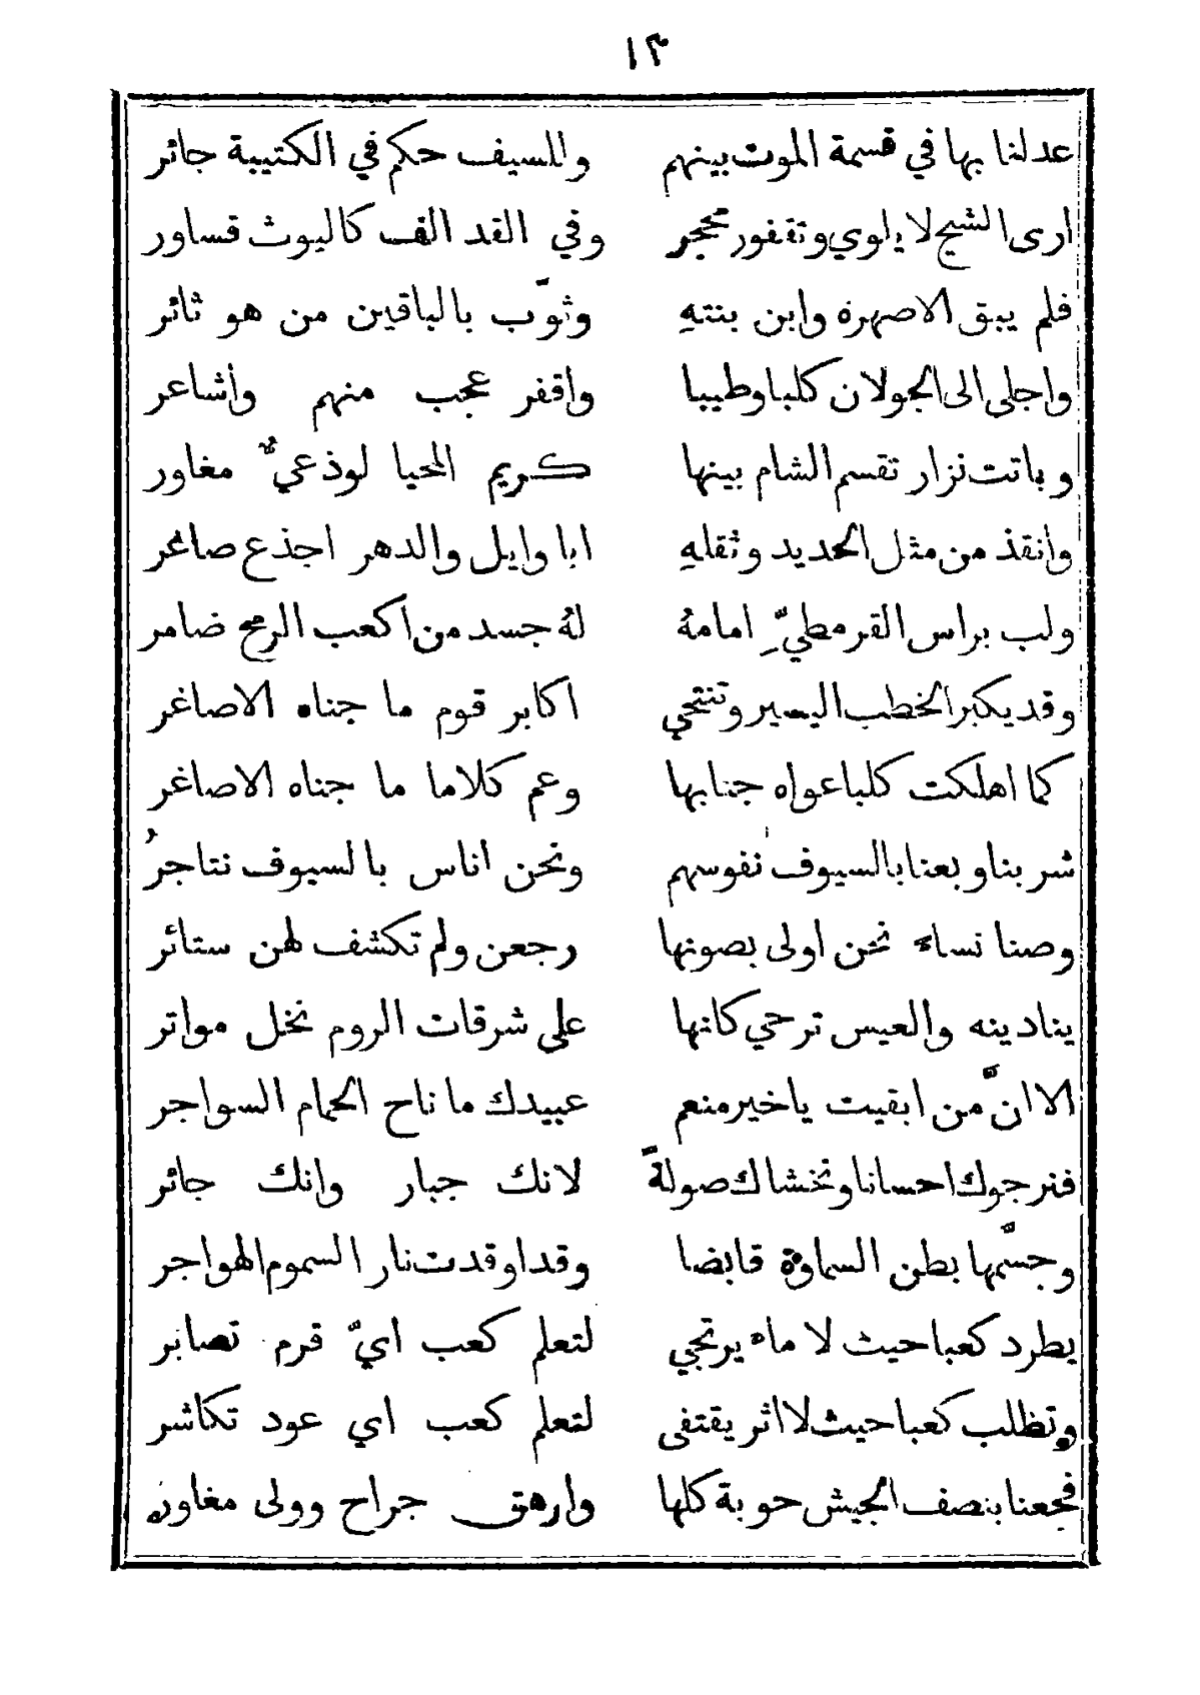 ١٣
عدلنا بها في قسمة الموت بينهم وللسيف حكم في الكتيبة جائر
ارى الشيح لا يلوي ونقفور محجر وفي القد الف كاليوث قساور
فلم يبق الا صهره وابن بنتهِ وثوّب بالباقين من هو ثائر
واجلى الى الجولان كلبا وطيبا واقفر عجب منهم وأشاعر
وباتت نزار تقسم الشام بينها كريم المحيا لوذعيٌّ مغاور
وانقذ من مثل الحديد وثقلهِ ابا وايل والدهر اجذع صاغر
ولب براس القرمطيِّ امامهُ لهُ جسد من اكعب الرمح ضامر
وقد يكبر الخطب اليسير وتنتجي اكابر قوم ما جناه الاصاغر
كما اهلكت كلبا عواه جنابها وعم كلاما ما جناه الاصاغر
شربنا وبعنا بالسيوف نفوسهم ونحن اناس بالسيوف نتاجرُ
وصنا نساء نحن اولى بصونها رجعن ولم تكشف لهن ستائر
ينادينه والعيس ترحي كانها على شرقات الروم نخل مواتر
الا انَّ من ابقيت ياخير منعم عبيدك ما ناح الحمام السواجر
فنرجوك احسانا ونخشاك صولةً لانك جبار وانك جائر
وجسَّمها بطن السماوة قابضا وقد اوقدت نار السموم الهواجر
يطرد كعبا حيث لا ماء يرتجي لتعلم كعب ايّ قرم تصابر
وتطلب كعبا حيث لا اثر يقتفى لتعلم كعب اي عود تكاشر
فجعنا بنصف الجيش حوبة كلها وارهق جراح وولى مغاوره